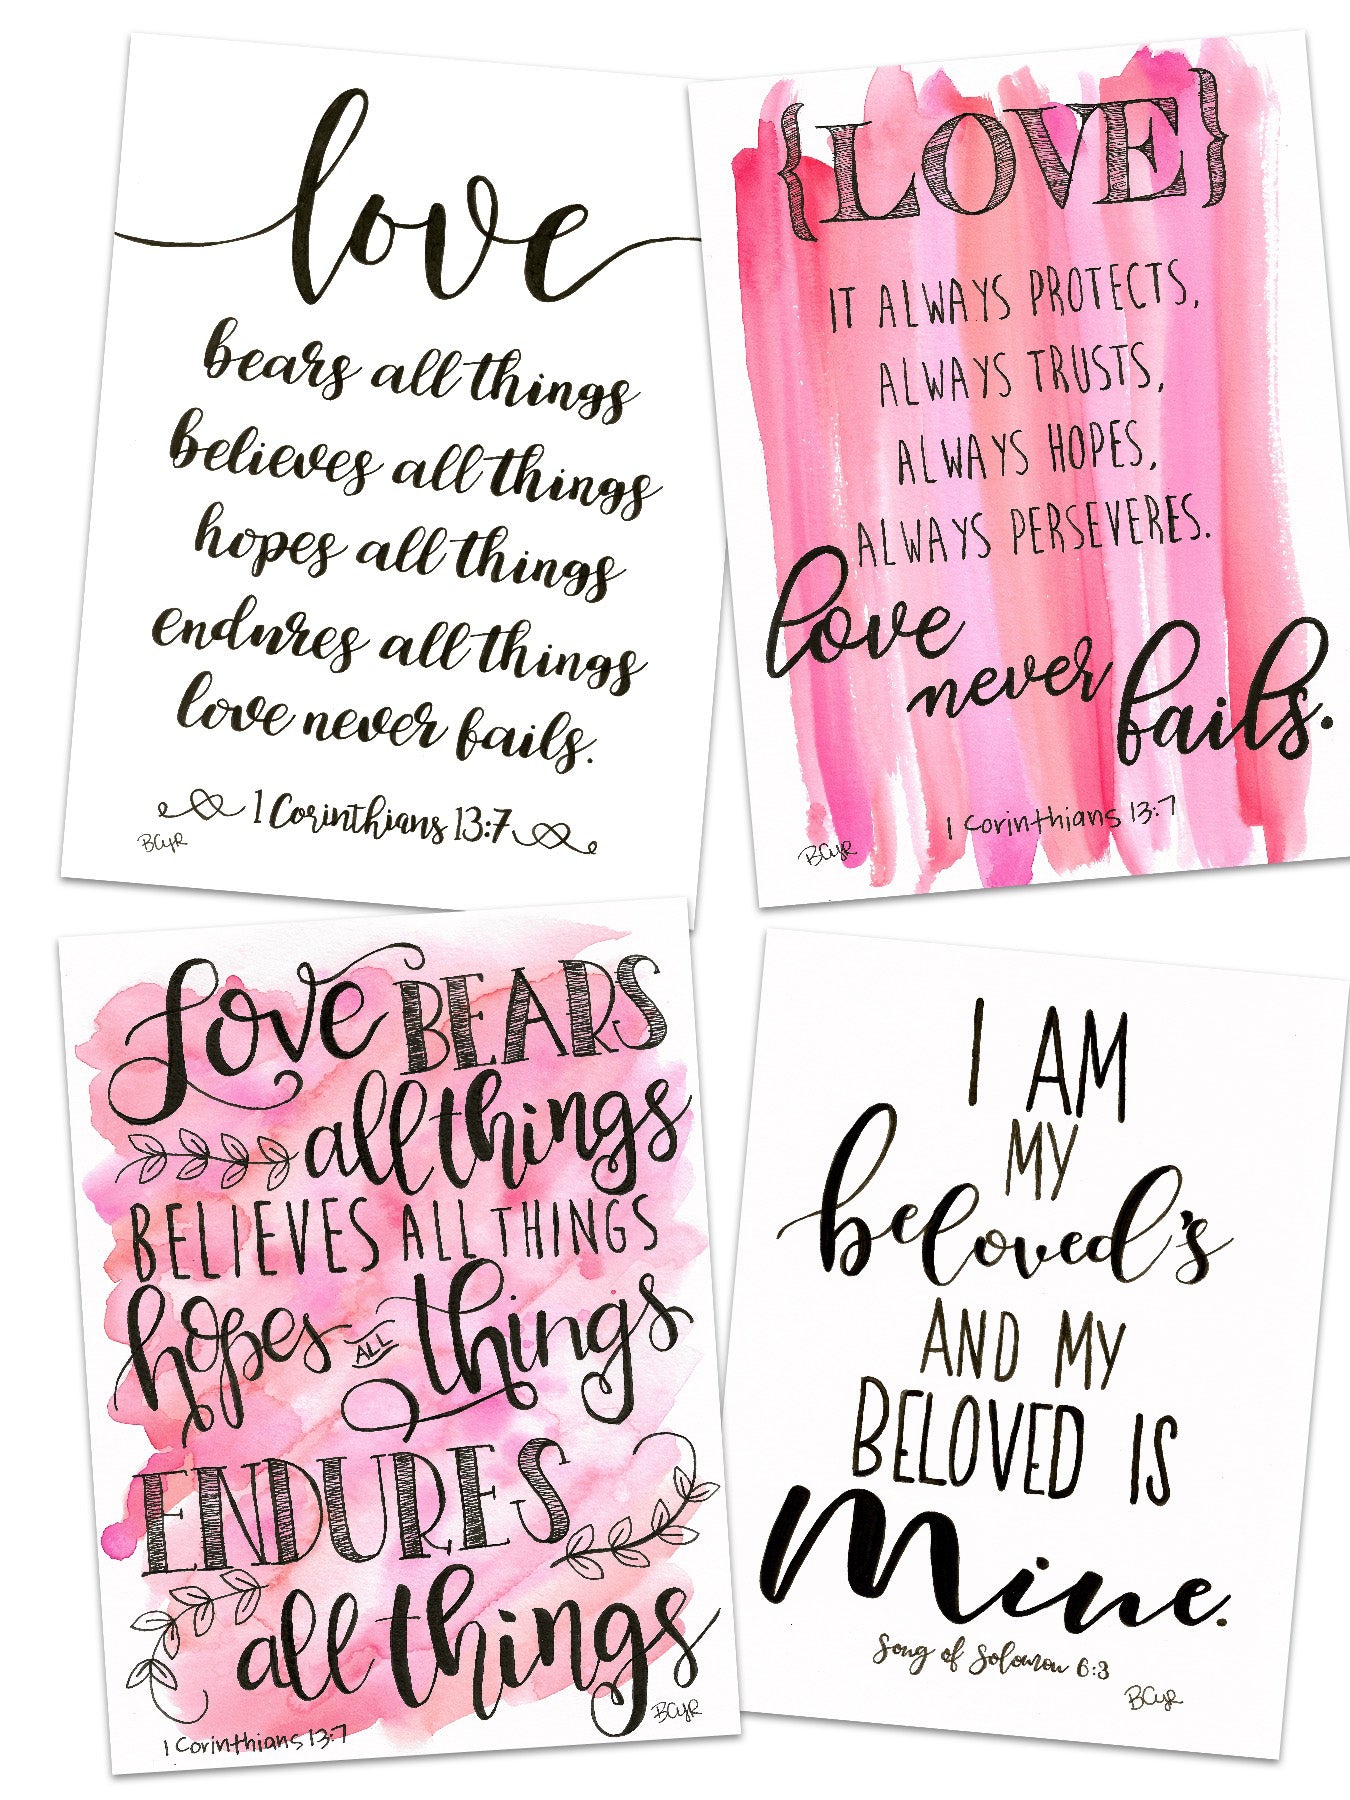 love
bears all things
believes all things
hopes all things
endures all things
love never fails.
1 Corinthians 13:7
BCyR
{LOVE}
IT ALWAYS PROTECTS,
ALWAYS TRUSTS,
ALWAYS HOPES,
ALWAYS PERSEVERES.
love
never
fails.
1 Corinthians 13:7
BCyR
Love BEARS
all things
BELIEVES ALL THINGS
hopes ALL things
ENDURES
all things
BCyR
1 Corinthians 13:7
I AM
MY
beloved's
AND MY
BELOVED IS
Mine.
Song of Solomon 6:3
BCyR